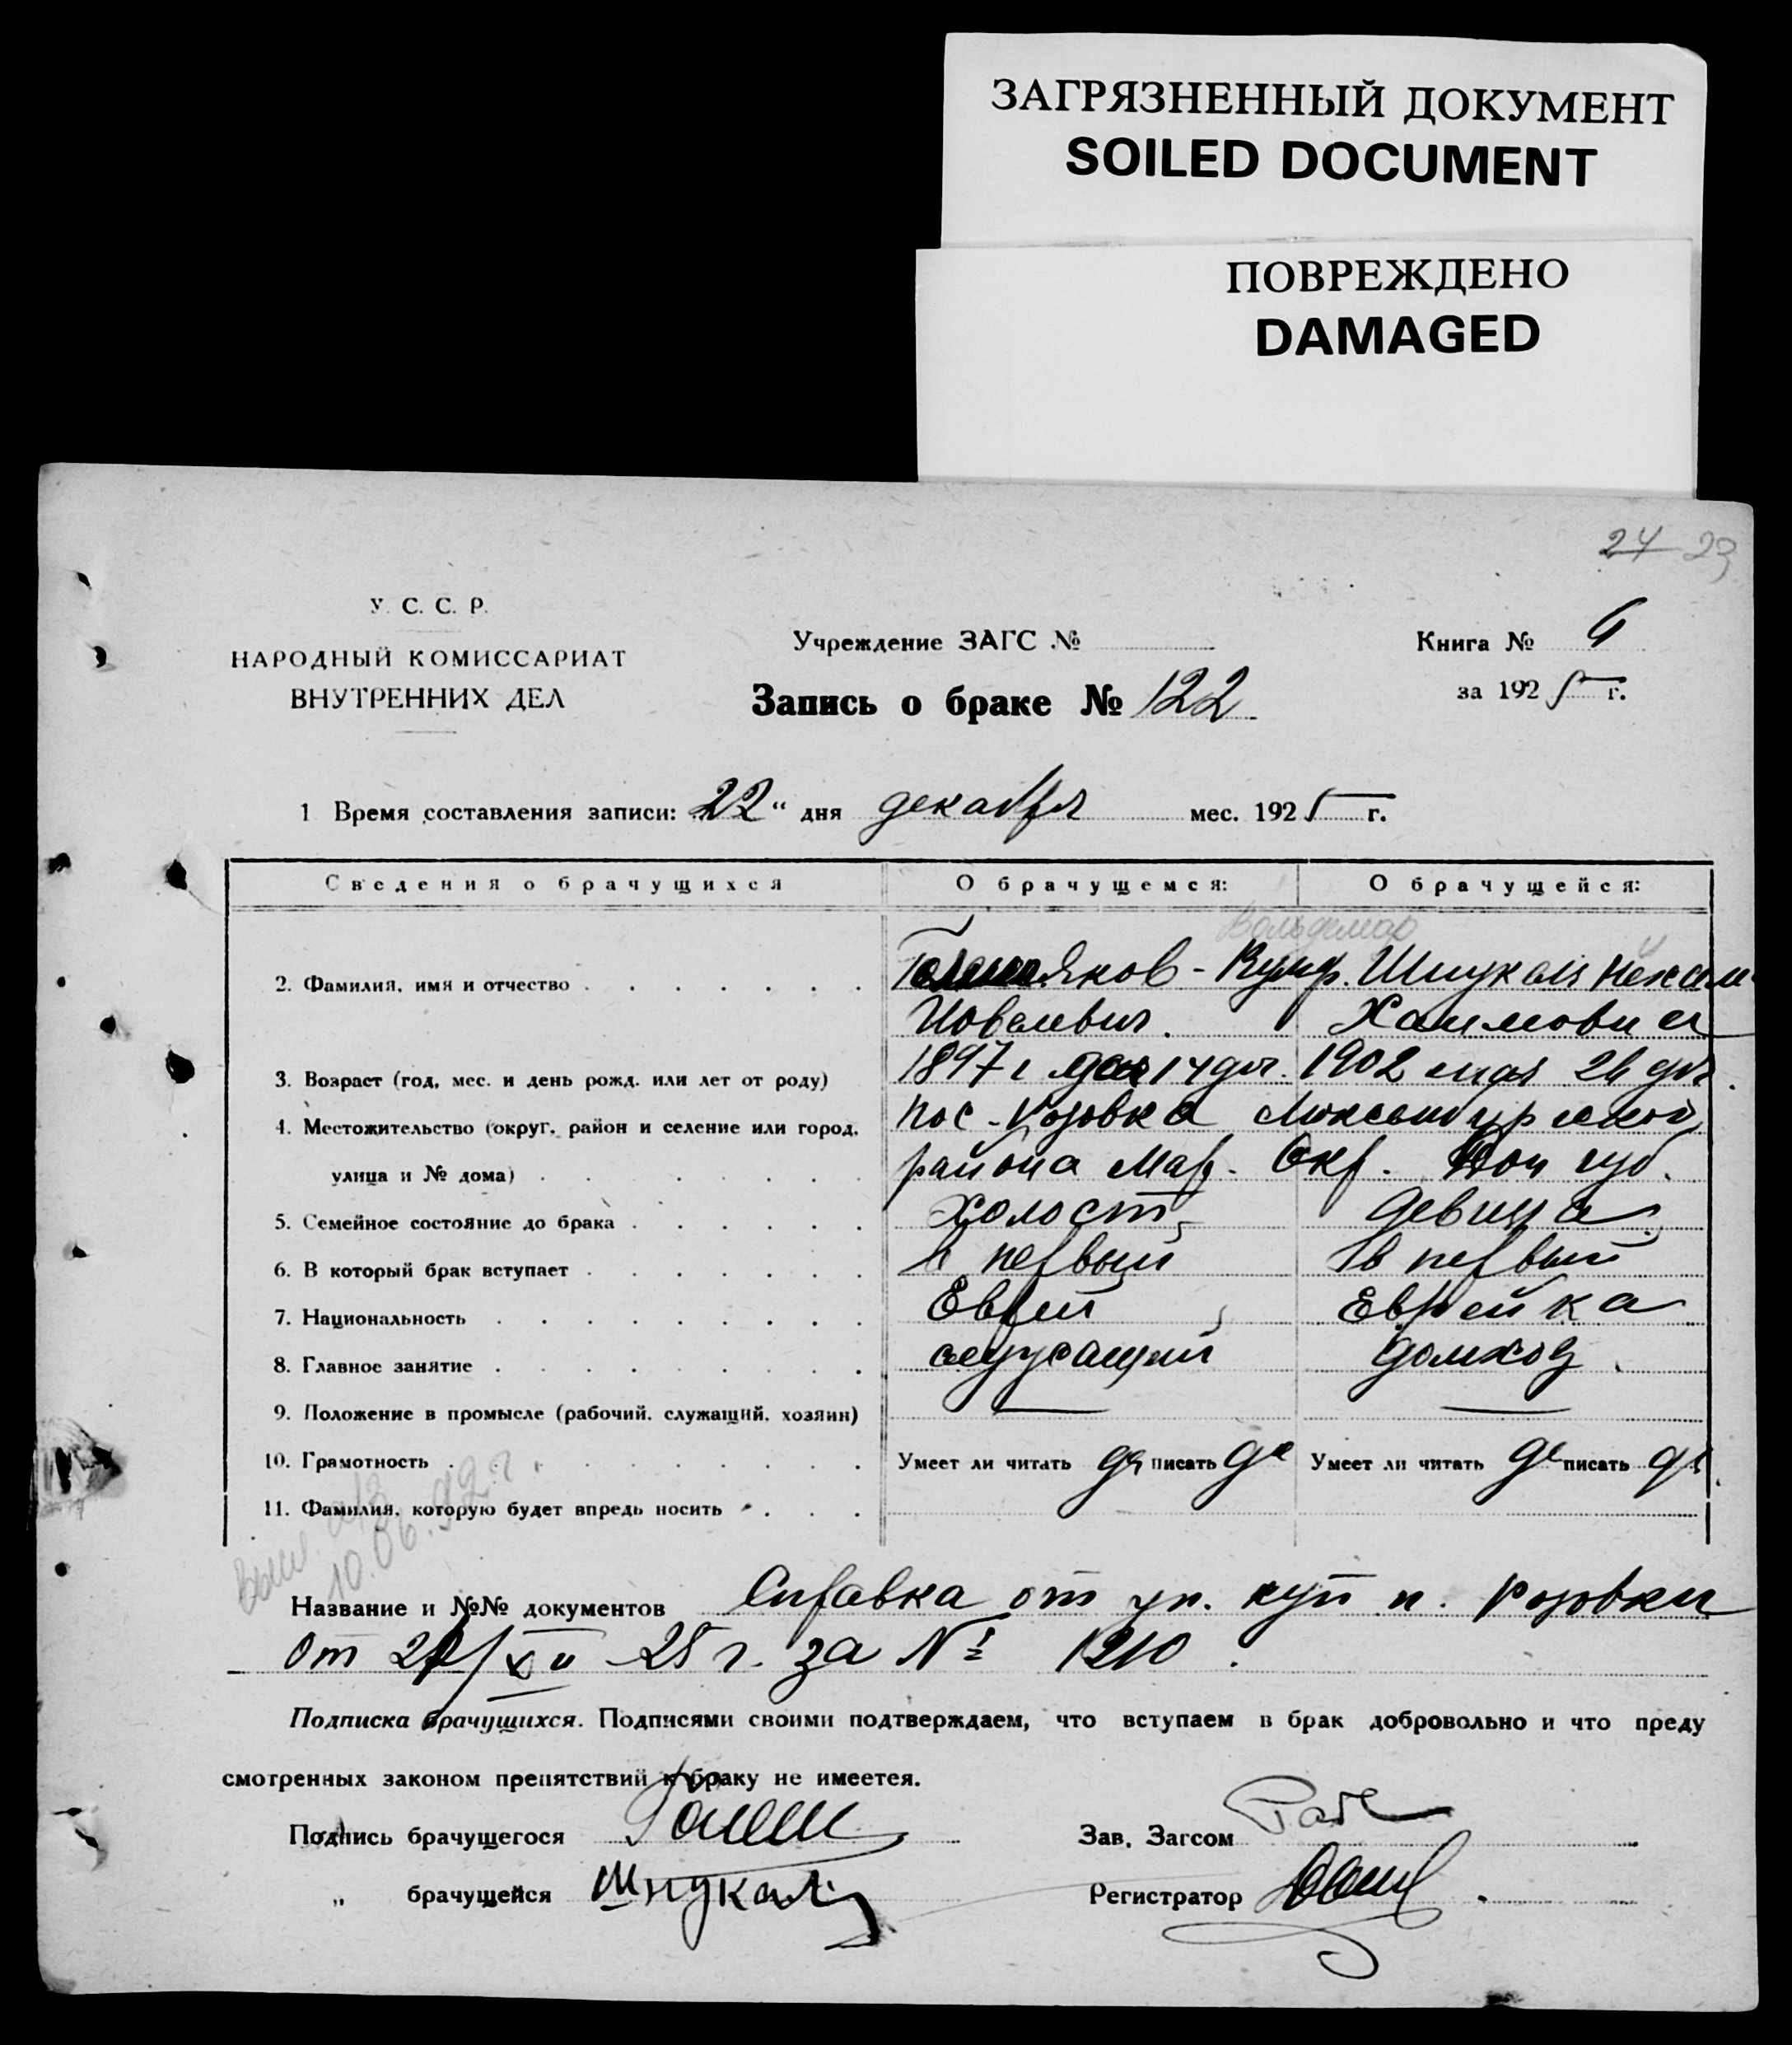 ЗАГРЯЗНЕННЫЙ ДОКУМЕНТ
SOILED DOCUMENT
ПОВРЕЖДЕНО
DAMAGED
24 23
У. С. С. Р.
НАРОДНЫЙ КОМИССАРИАТ
ВНУТРЕННИХ ДЕЛ
Учреждение ЗАГС №
Запись о браке № 122
Книга №
за 1925 г.
1 Время составления записи: 22 " дня декабря мес. 1925 г.
Сведения о брачущихся О брачущемся: О брачущейся:
Вольдемар
2. Фамилия, имя и отчество
Хаимовна
3. Возраст (год, мес. и день рожд. или лет от роду) 1897 г 14 дня 1902 26 дня
4. Местожительство (округ, район и селение или город, пос. Розовка Люксембургского
улица и № дома) района Мар. Окр. Дон губ.
5. Семейное состояние до брака Холост девица
6. В который брак вступает в первый в первый
7. Национальность Еврей Еврейка
8. Главное занятие служащий домхоз
9. Положение в промысле (рабочий, служащий, хозяин) — —
10. Грамотность Умеет ли читать да писать да Умеет ли читать да писать да
11. Фамилия, которую будет впредь носить
10.06.92 г.
Название и №№ документов Справка от п. Розовки
от 25 г. за № 1210.
Подписка брачущихся. Подписями своими подтверждаем, что вступаем в брак добровольно и что преду
смотренных законом препятствий к браку не имеется.
Подпись брачущегося
" брачущейся
Зав. Загсом
Регистратор